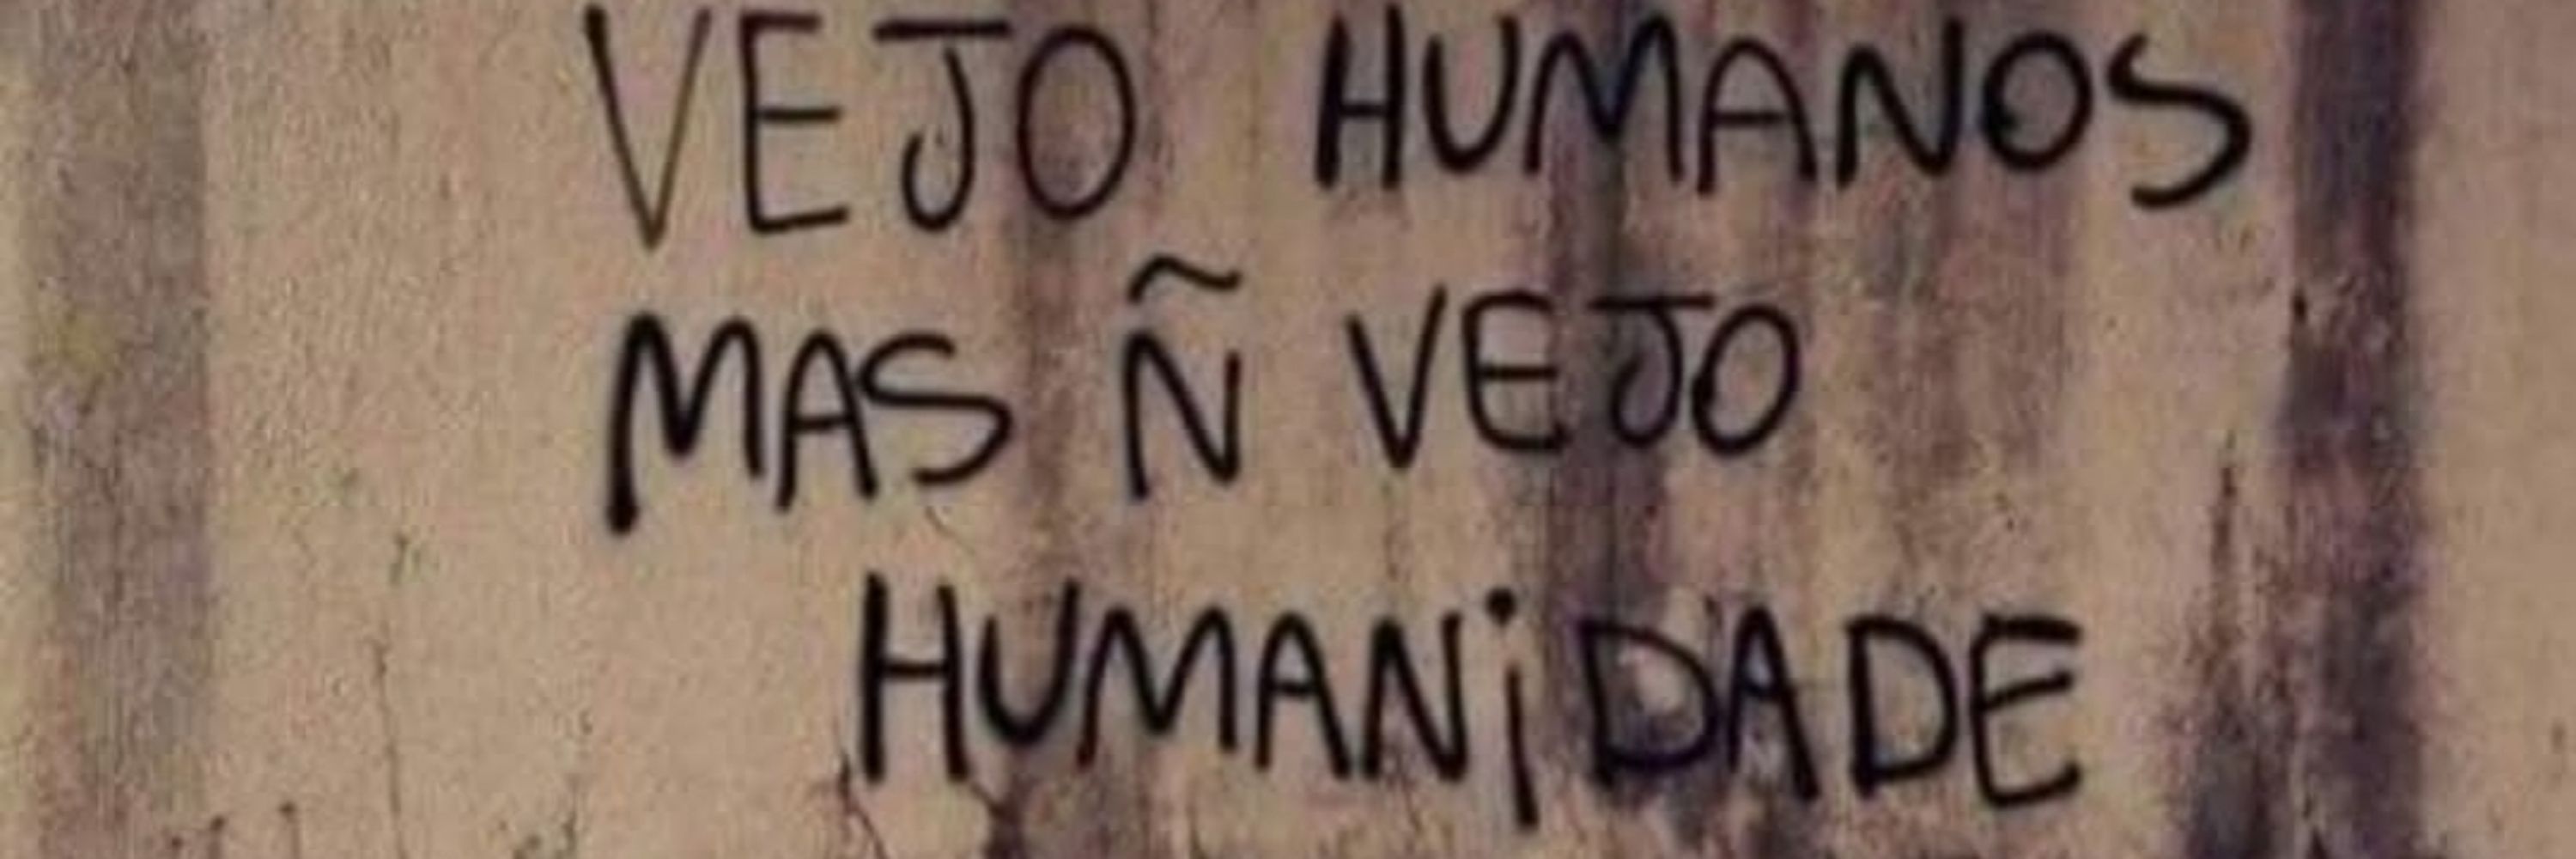 VEJO HUMANOS
MAS Ñ VEJO
HUMANiDADE